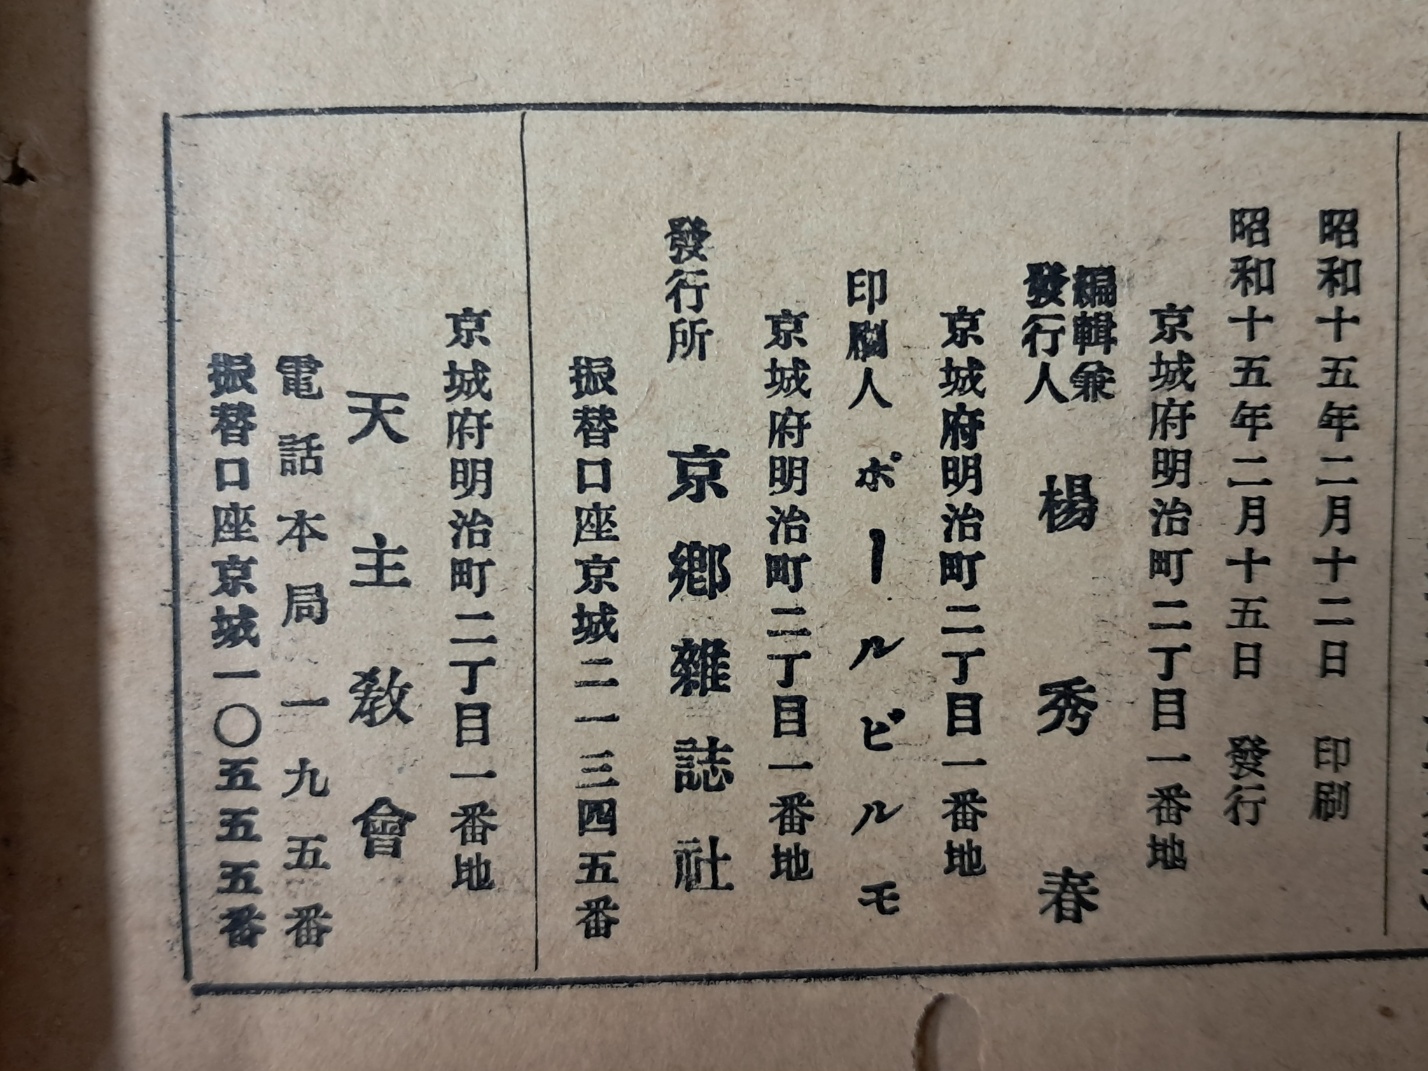 昭和十五年二月十二日 印刷
昭和十五年二月十五日 發行
京城府明治町二丁目一番地
編輯兼
發行人 楊秀春
京城府明治町二丁目一番地
印刷人 ポールビルモ
京城府明治町二丁目一番地
發行所 京鄉雜誌社
振替口座京城二一三四五番
京城府明治町二丁目一番地
天主敎會
電話本局一九五番
振替口座京城一〇五五五番